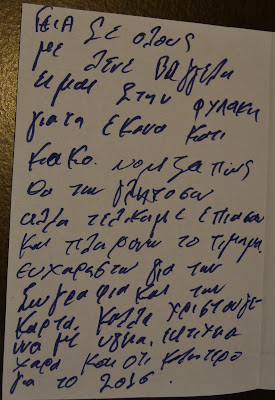 ΓΕιΑ ΣΕ ολους
με λενε ΒΑγγελη
ειμαι Στην φυλακη
γιατι εκανα κατι
κακο. νομιζα πως
θα την γλητοσω
αλλα τελικα με επιασαν
και πλαρονω το τιμημα.
ευχαραστω για την
ζωγραφια και την
καρτα. καλλα χριστουγε
να με υγεια, ευτιχια
χαρα και οτι καλητερο
για το 2016.